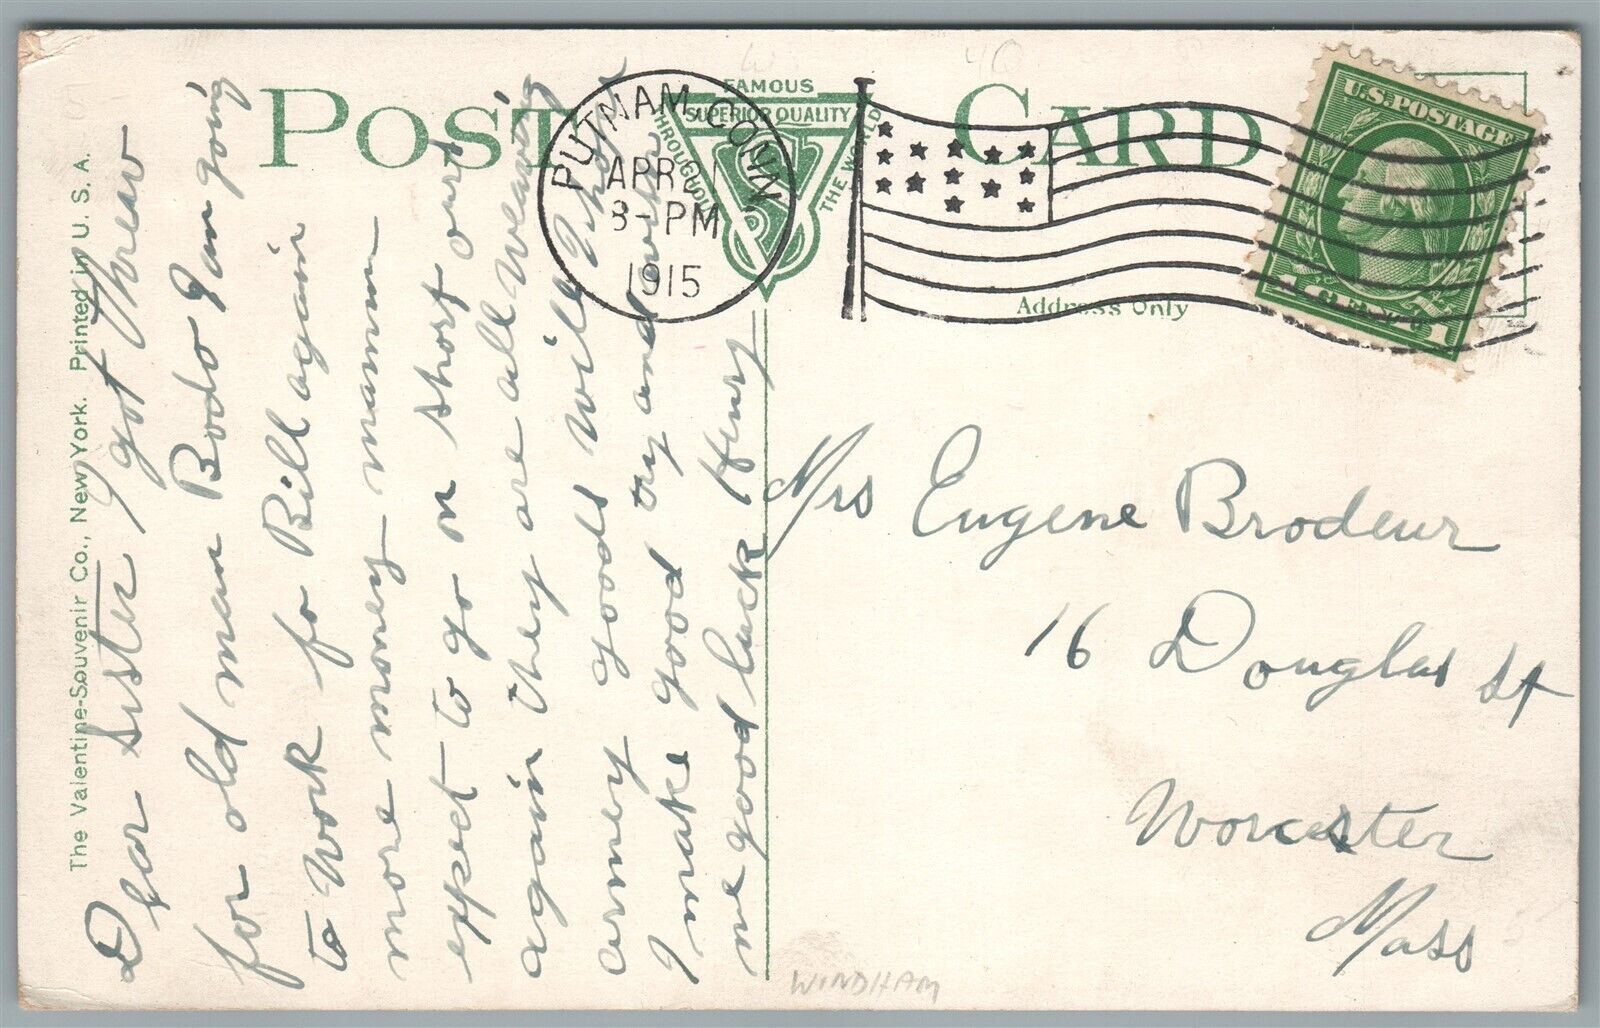 POST CARD
FAMOUS
SUPERIOR QUALITY
THROUGHOUT
THE WORLD
PUTNAM, CONN.
APR 21
8-PM
1915
U.S. POSTAGE
Address Only
The Valentine-Souvenir Co., New York. Printed in U. S. A.
Dear Sister I got threw
for old man Bodo I am going
to work fo Bill again
more money mamm
expect to go on short
again they are all weaving
army goods will I hope
I make good try and
me good luck Henry
Mrs Eugene Brodeur
16 Douglas St
Worcester
Mass
WINDHAM
40